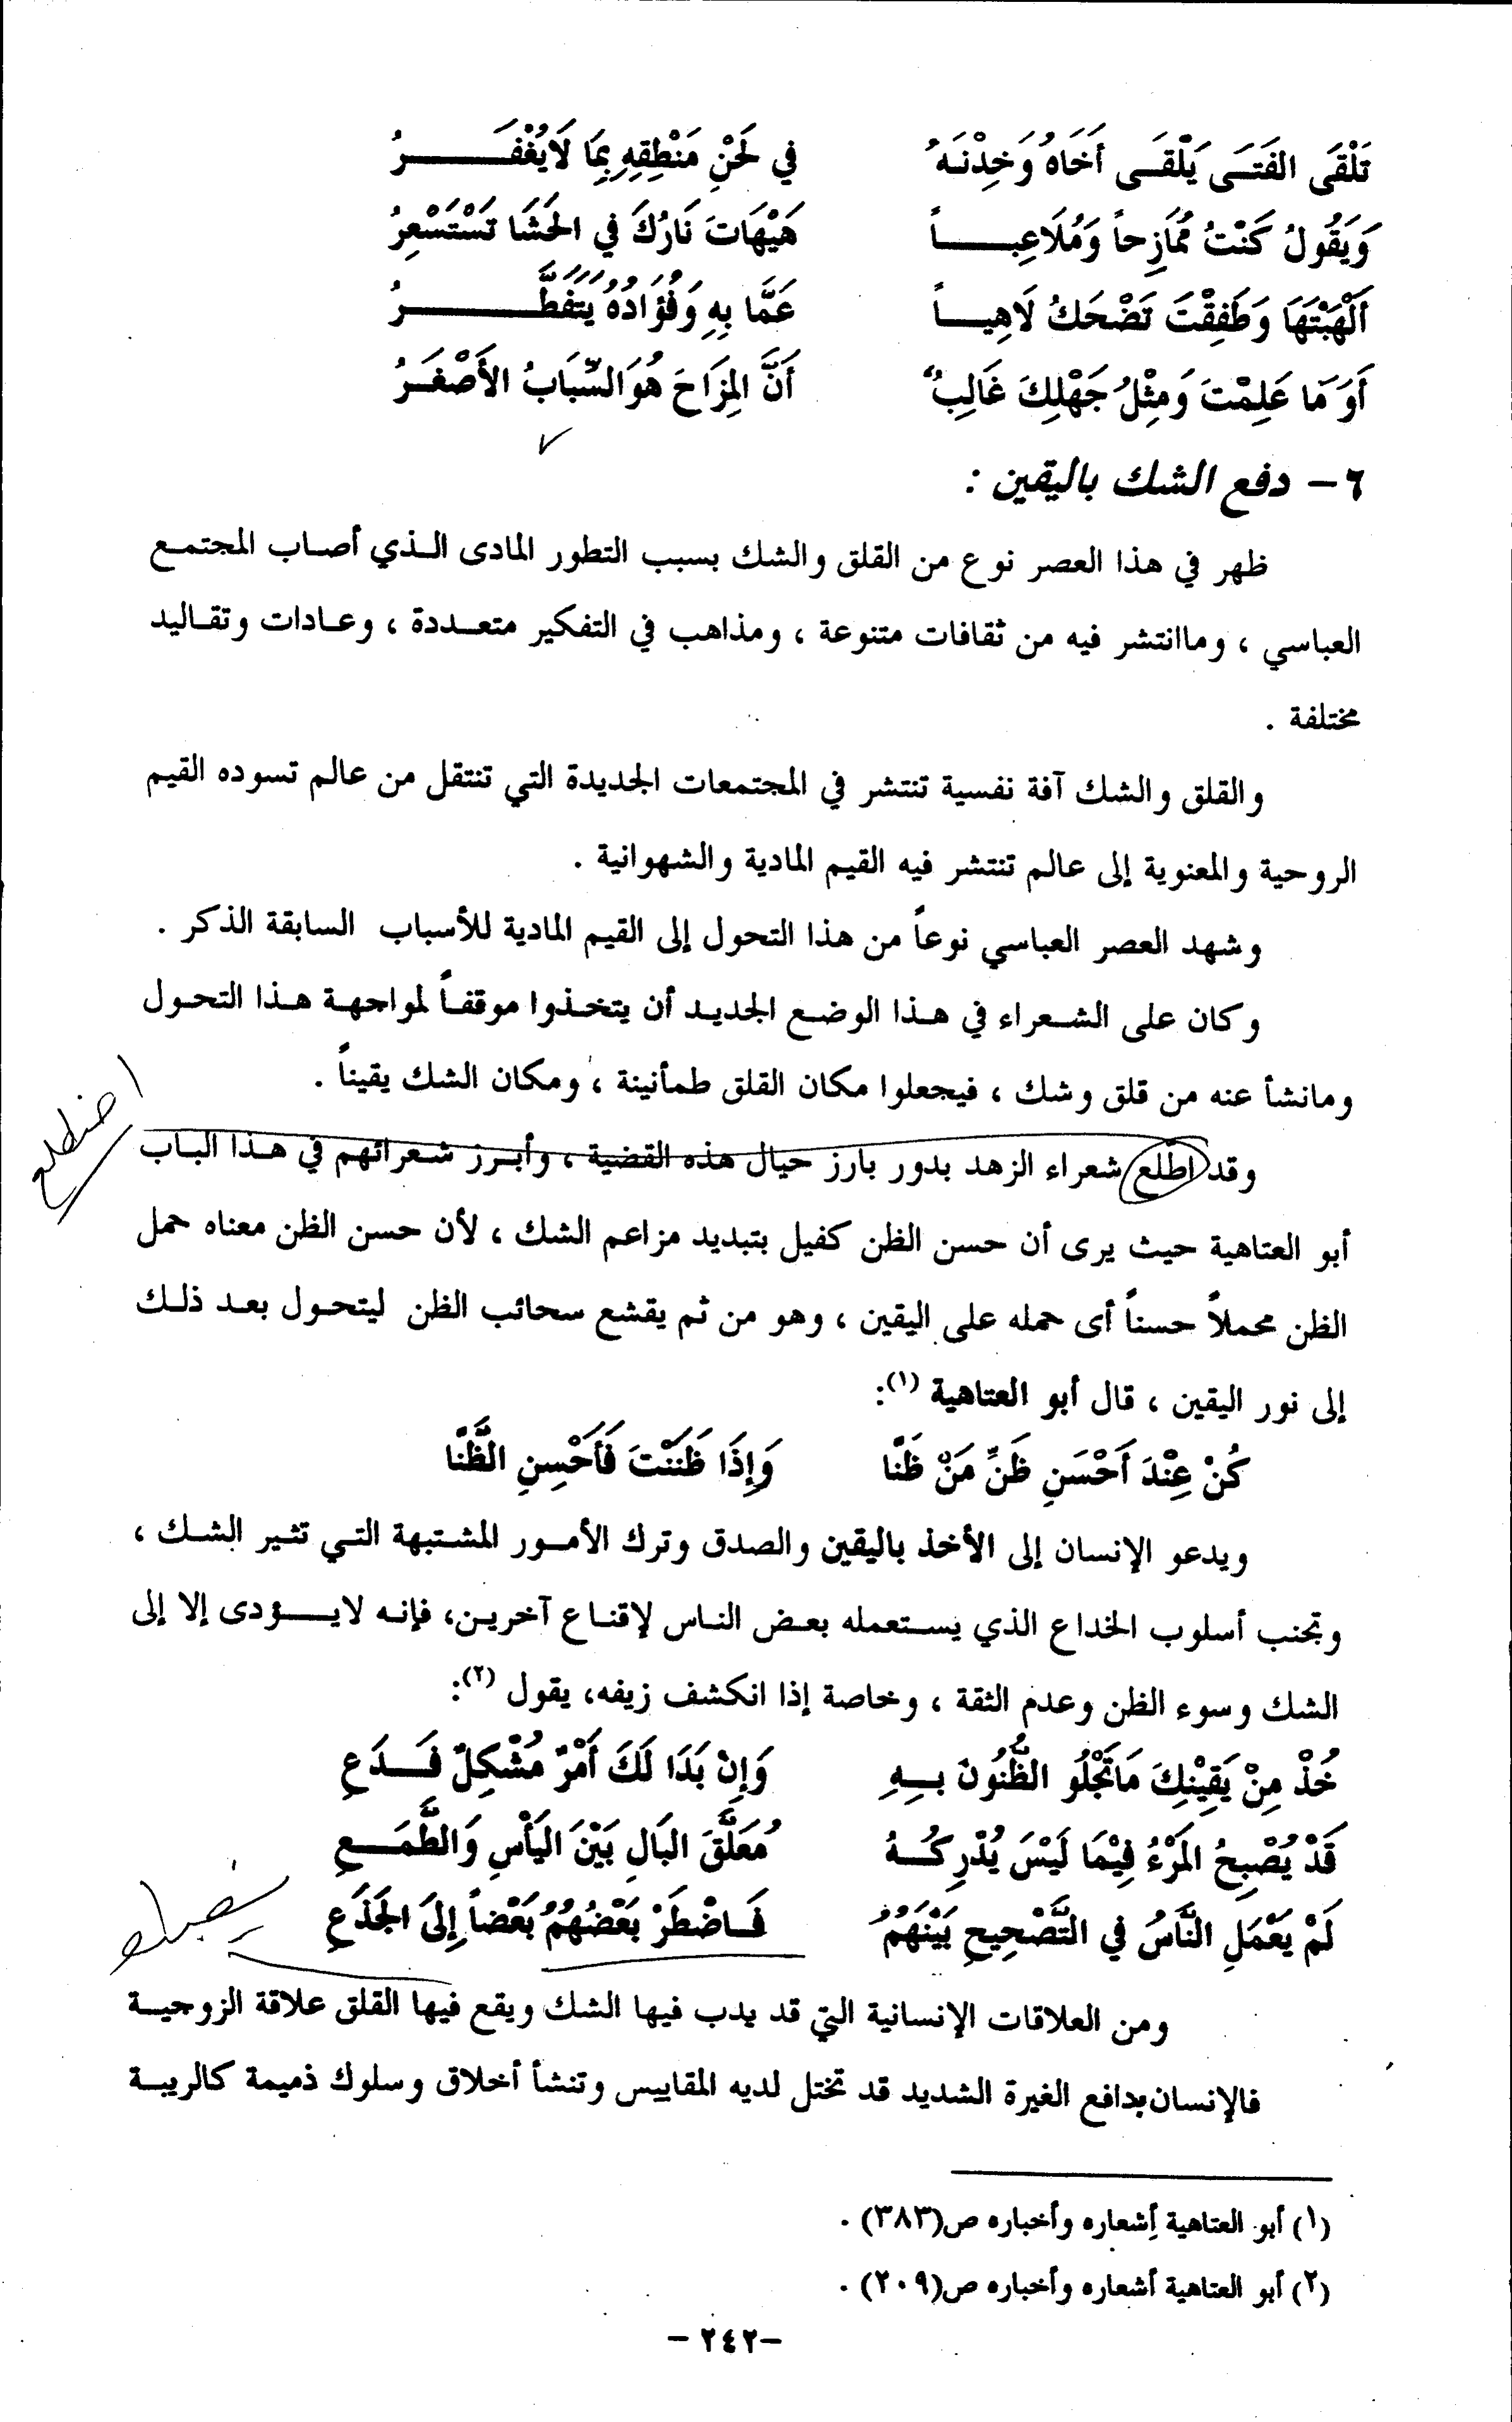 تَلْقَى الفَتَى يَلْقَى أَخَاهُ وَخِدْنَهُ في لَحَنْ مَنْطِقِهِ بِمَا لَايُغْفَرُ
وَيَقُولُ كَنْتُ مُمَازِحاً وَمُلَاعِباً هَيْهَاتَ نَارُكَ في الحَشَا تَسْتَسْعِرُ
أَلْهَبْتَهَا وَطَفِقْتَ تَضْحَكُ لَاهِياً عَمَّا بِهِ وَفُؤَادُهُ يَتَفَطَّرُ
أَوَ مَا عَلِمْتَ وَمِثْلُ جَهْلِكَ غَالِبٌ أَنَّ المِزَاحَ هُوَ السِّبَابُ الأَصْغَرُ
٦ – دفع الشك باليقين :
ظهر في هذا العصر نوع من القلق والشك بسبب التطور المادى الذي أصاب المجتمع
العباسي ، وماانتشر فيه من ثقافات متنوعة ، ومذاهب في التفكير متعددة ، وعادات وتقاليد
مختلفة .
والقلق والشك آفة نفسية تنتشر في المجتمعات الجديدة التي تنتقل من عالم تسوده القيم
الروحية والمعنوية إلى عالم تنتشر فيه القيم المادية والشهوانية .
وشهد العصر العباسي نوعاً من هذا التحول إلى القيم المادية للأسباب السابقة الذكر .
وكان على الشعراء في هذا الوضع الجديد أن يتخذوا موقفاً لمواجهة هذا التحول
ومانشأ عنه من قلق وشك ، فيجعلوا مكان القلق طمأنينة ، ومكان الشك يقيناً .
اضطلع
وقد اطّلع شعراء الزهد بدور بارز حيال هذه القضية ، وأبرز شعرائهم في هذا الباب
أبو العتاهية حيث يرى أن حسن الظن كفيل بتبديد مزاعم الشك ، لأن حسن الظن معناه حمل
الظن محملاً حسناً أى حمله على اليقين ، وهو من ثم يقشع سحائب الظن ليتحول بعد ذلك
إلى نور اليقين ، قال أبو العتاهية (١):
كُنْ عِنْدَ أَحْسَنِ ظَنِّ مَنْ ظَنَّا وَإِذَا ظَنَنْتَ فَأَحْسِنِ الظَّنَّا
ويدعو الإنسان إلى الأخذ باليقين والصدق وترك الأمور المشتبهة التي تثير الشك ،
وتجنب أسلوب الخداع الذي يستعمله بعض الناس لإقناع آخرين، فإنه لايؤدى إلا إلى
الشك وسوء الظن وعدم الثقة ، وخاصة إذا انكشف زيفه، يقول (٢):
خُذْ مِنْ يَقِيْنِكَ مَاتَجْلُو الظُّنُونَ بِهِ وَإِنْ بَدَا لَكَ أَمْرٌ مُشْكِلٌ فَدَعِ
قَدْ يُصْبِحُ المَرْءُ فِيْمَا لَيْسَ يُدْرِكُهُ مُعَلَّقَ البَالِ بَيْنَ اليَأْسِ وَالطَّمَعِ
لَمْ يَعْمَلِ النَّاسُ في التَّصْحِيحِ بَيْنَهُمُ فَاضْطَرْ بَعْضُهُمُ بَعْضاً إِلَىَ الجَذَعِ
ومن العلاقات الإنسانية التي قد يدب فيها الشك ويقع فيها القلق علاقة الزوجية
فالإنسان بدافع الغيرة الشديد قد تختل لديه المقاييس وتنشأ أخلاق وسلوك ذميمة كالريبة
(١) أبو العتاهية أشعاره وأخباره ص(٣٨٣) .
(٢) أبو العتاهية أشعاره وأخباره ص(٢٠٩) .
–٢٤٢ –